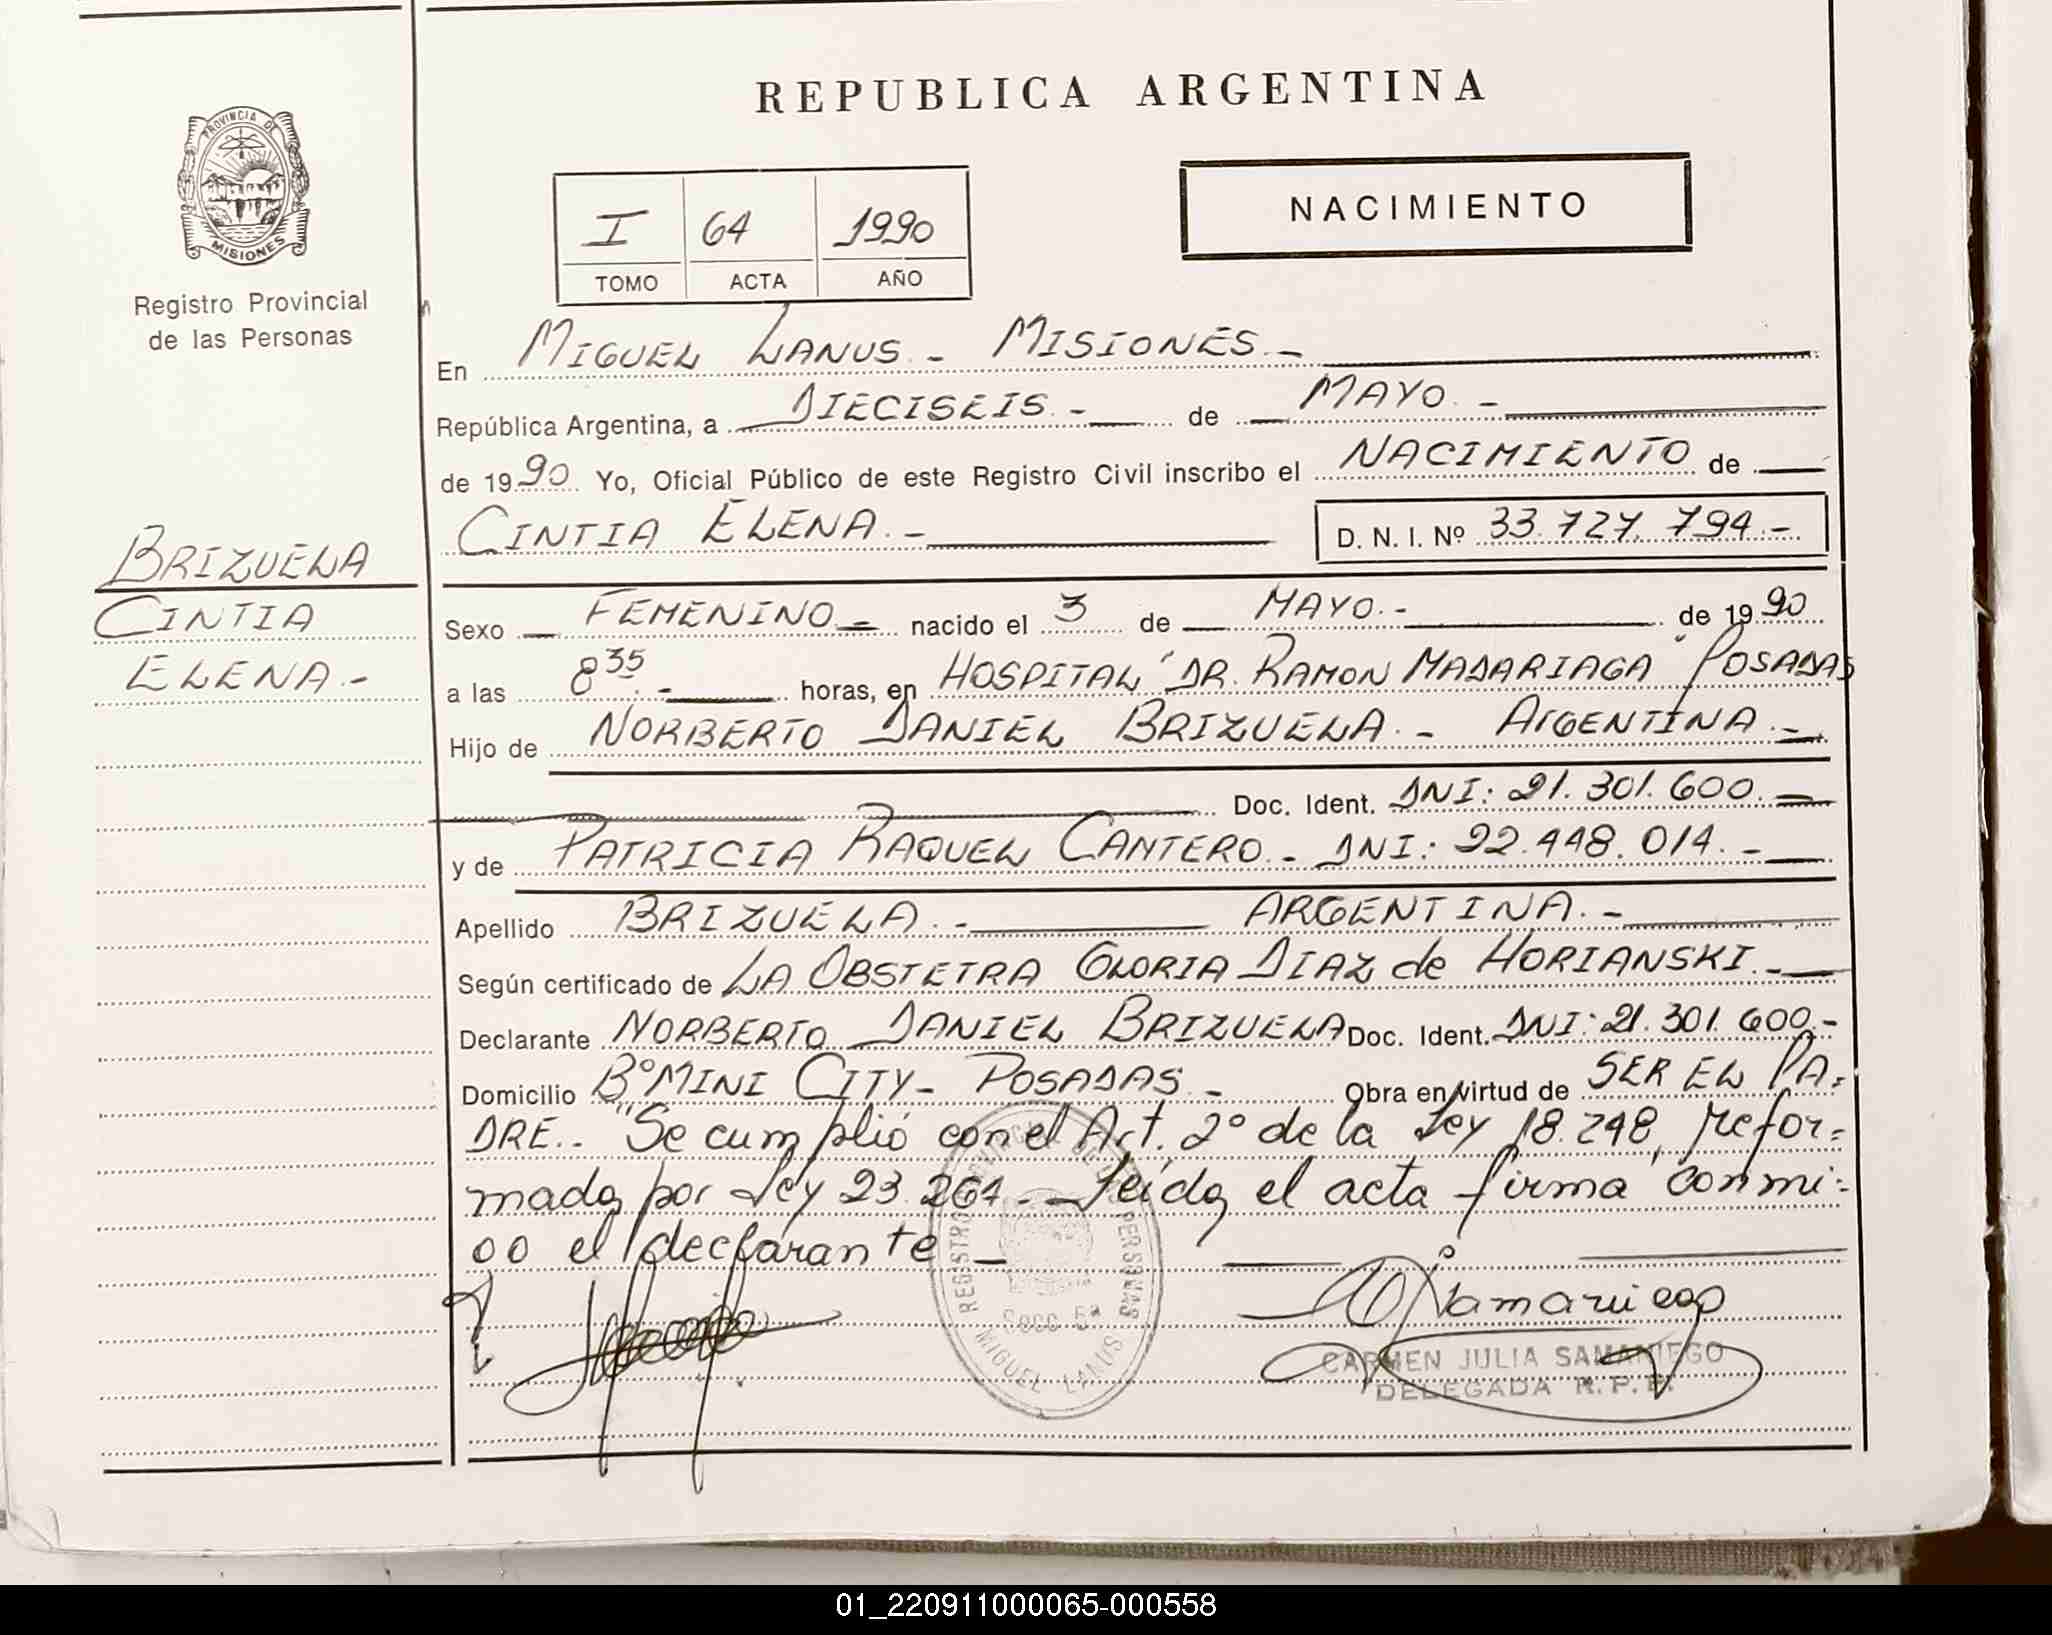 REPUBLICA ARGENTINA
PROVINCIA DE
MISIONES
Registro Provincial
de las Personas
I 64 1990
TOMO ACTA AÑO
NACIMIENTO
En MIGUEL LANUS.- MISIONES.-
República Argentina, a DIECISEIS.- de MAYO.-
de 1990 Yo, Oficial Público de este Registro Civil inscribo el NACIMIENTO de
CINTIA ELENA.- D. N. I. Nº 33.727.794.-
BRIZUELA
CINTIA
ELENA.-
Sexo FEMENINO- nacido el 3 de MAYO.- de 1990
a las 8 35.- horas, en HOSPITAL "DR. RAMON MADARIAGA" POSADAS
Hijo de NORBERTO DANIEL BRIZUELA.- ARGENTINA.-
Doc. Ident. DNI: 21.301.600.-
y de PATRICIA RAQUEL CANTERO.- DNI: 22.448.014.-
Apellido BRIZUELA.- ARGENTINA.-
Según certificado de LA OBSTETRA GLORIA DIAZ de HORIANSKI.-
Declarante NORBERTO DANIEL BRIZUELA Doc. Ident. DNI: 21.301.600.-
Domicilio Bº MINI CITY- POSADAS.- Obra en virtud de SER EL PA=
DRE.- "Se cumplió con el Art. 2º de la Ley 18.248, refor=
mada por Ley 23.264.- Leída el acta firma conmi=
go el declarante
REGISTRO PROVINCIAL DE LAS PERSONAS
Secc 5ª
MIGUEL LANUS
CARMEN JULIA SAMANIEGO
DELEGADA R.P.P.
01_220911000065-000558